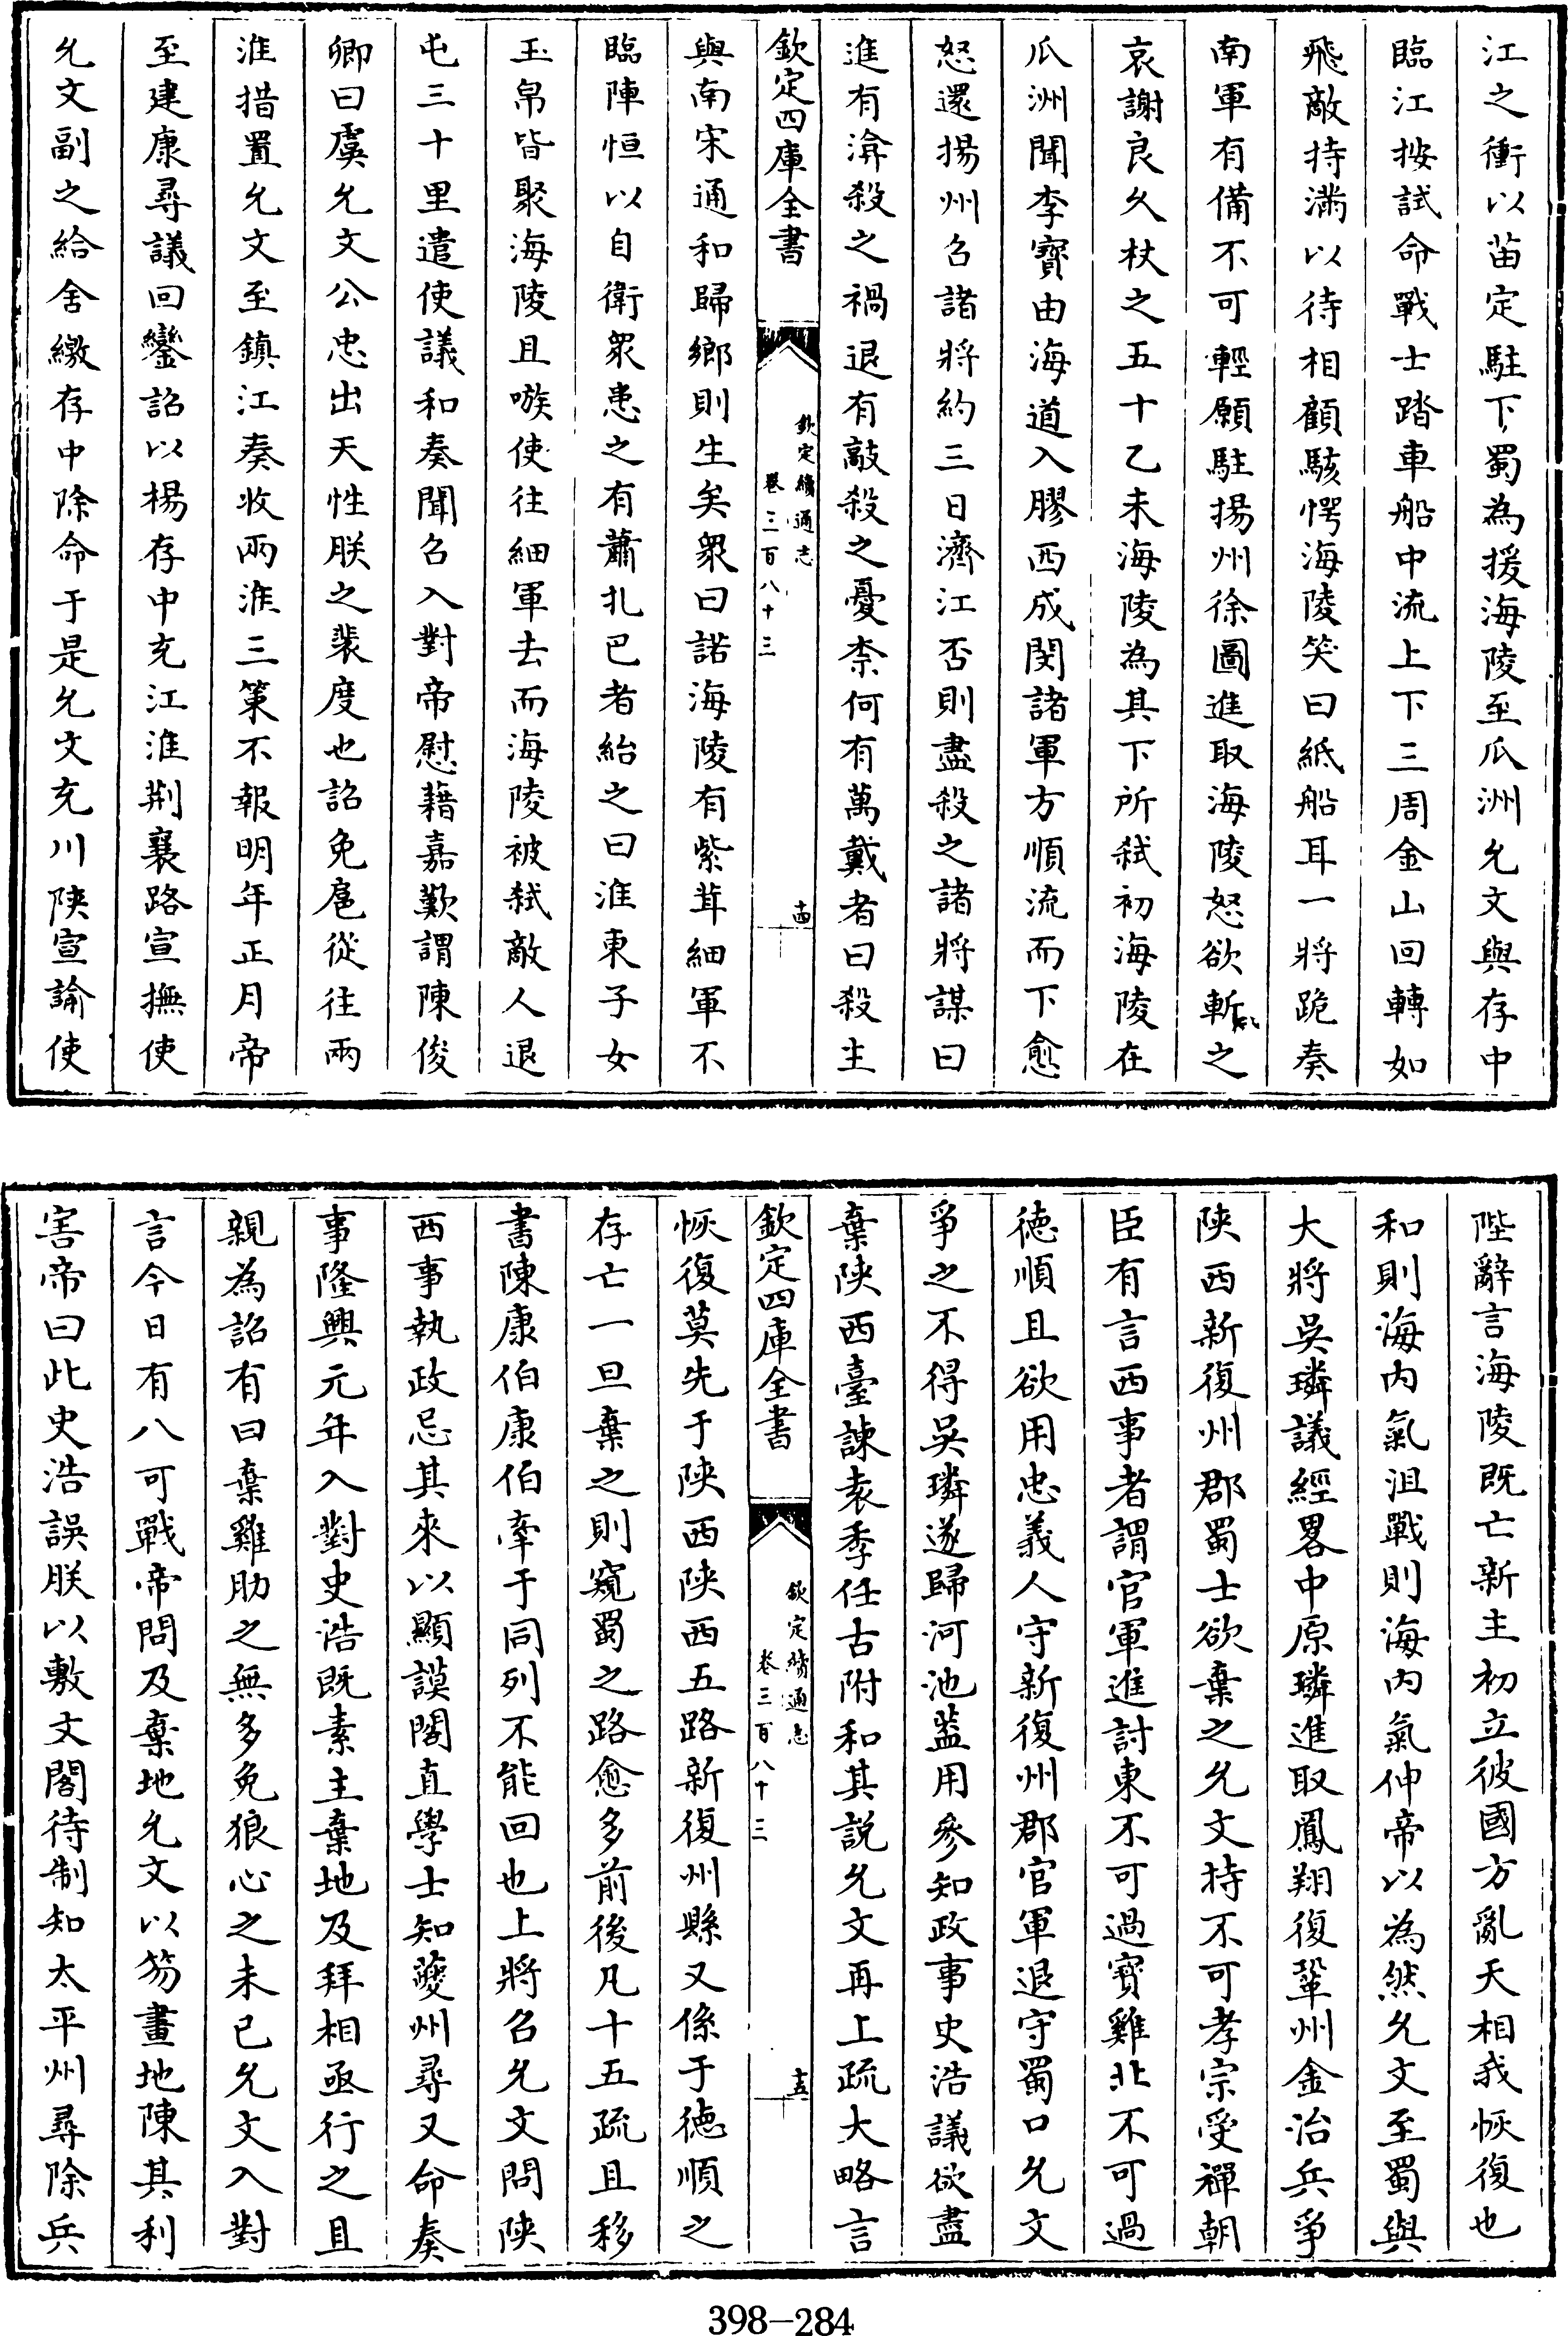 江之衝以苗定駐下蜀為援海陵至瓜洲允文與存中
臨江按試命戰士踏車船中流上下三周金山回轉如
飛敵持滿以待相顧駭愕海陵笑曰紙船耳一將跪奏
南軍有備不可輕願駐揚州徐圖進取海陵怒欲斬之
哀謝良久杖之五十乙未海陵為其下所弒初海陵在
瓜洲聞李寶由海道入膠西成閔諸軍方順流而下愈
怒還揚州召諸將約三日濟江否則盡殺之諸將謀曰
進有渰殺之禍退有敲殺之憂柰何有萬戴者曰殺生
欽定四庫全書
欽定續通志
卷三百八十三
十四
與南宋通和歸鄉則生矣衆曰諾海陵有紫茸細軍不
臨陣恒以自衛衆患之有蕭扎巴者紿之曰淮東子女
玉帛皆聚海陵且嗾使往細軍去而海陵被弒敵人退
屯三十里遣使議和奏聞召入對帝慰藉嘉歎謂陳俊
卿曰虞允文公忠出天性朕之裴度也詔免扈從往兩
淮措置允文至鎮江奏收兩淮三策不報明年正月帝
至建康尋議回鑾詔以楊存中充江淮荆襄路宣撫使
允文副之給舍繳存中除命于是允文充川陜宣諭使
陛辭言海陵既亡新主初立彼國方亂天相我恢復也
和則海內氣沮戰則海內氣伸帝以為然允文至蜀與
大將吳璘議經畧中原璘進取鳳翔復鞏州金治兵爭
陜西新復州郡蜀士欲棄之允文持不可孝宗受禪朝
臣有言西事者謂官軍進討東不可過寶雞北不可過
德順且欲用忠義人守新復州郡官軍退守蜀口允文
爭之不得吳璘遂歸河池葢用參知政事史浩議欲盡
棄陜西臺諫袁季任古附和其說允文再上疏大略言
欽定四庫全書
欽定續通志
卷三百八十三
十五
恢復莫先于陜西陜西五路新復州縣又係于德順之
存亡一旦棄之則窺蜀之路愈多前後凡十五疏且移
書陳康伯康伯牽于同列不能回也上將召允文問陜
西事執政忌其來以顯謨閣直學士知夔州尋又命奏
事隆興元年入對史浩既素主棄地及拜相亟行之且
親為詔有曰棄雞肋之無多免狼心之未已允文入對
言今日有八可戰帝問及棄地允文以笏畫地陳其利
害帝曰此史浩誤朕以敷文閣待制知太平州尋除兵